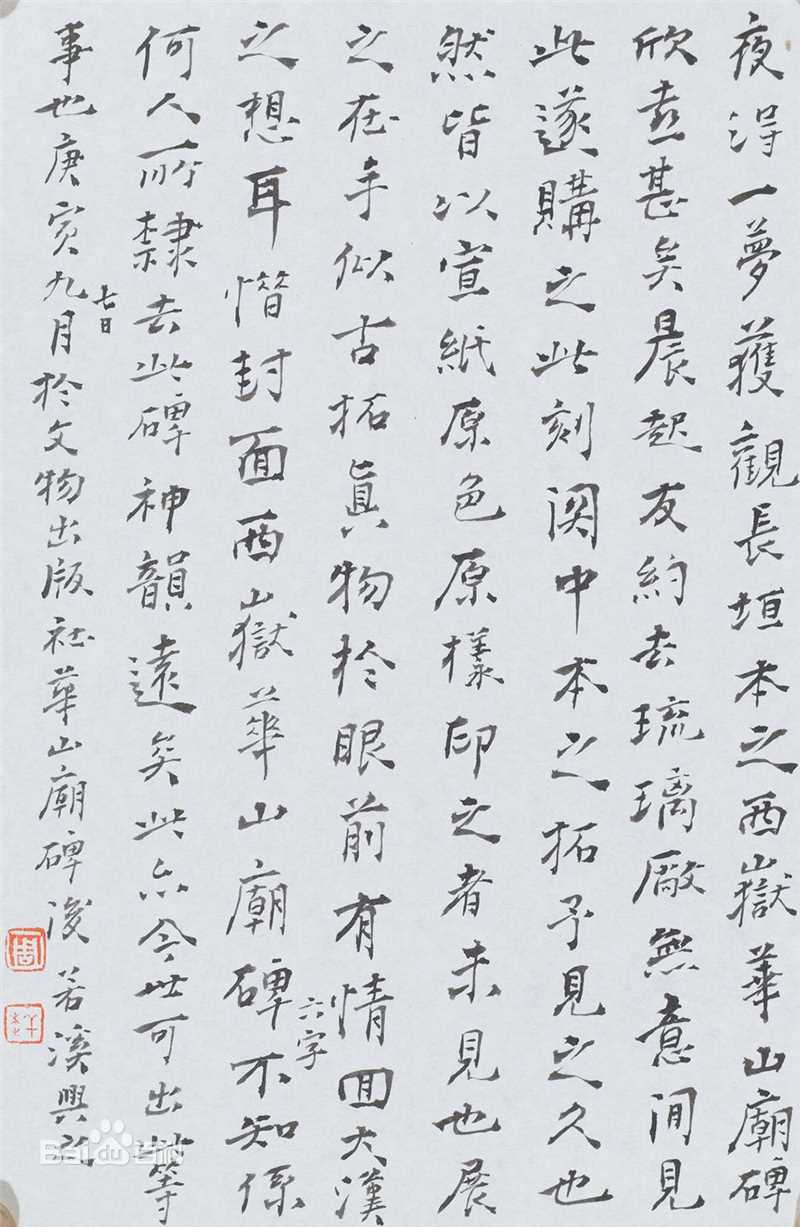 夜得一夢獲觀長垣本之西嶽華山廟碑
欣喜甚矣晨起友約去琉璃厰無意間見
此遂購之此刻関中本之拓予見之久也
然皆以宣紙原色原樣印之者未見也展
之在手似古拓真物於眼前有情回大漢
之想耳惜封面西嶽華山廟碑六字不知係
何人所隸去此碑神韻遠矣此亦今世可出此等
事也庚寅九月七日於文物出版社華山廟碑後若溪興記
Bai百科